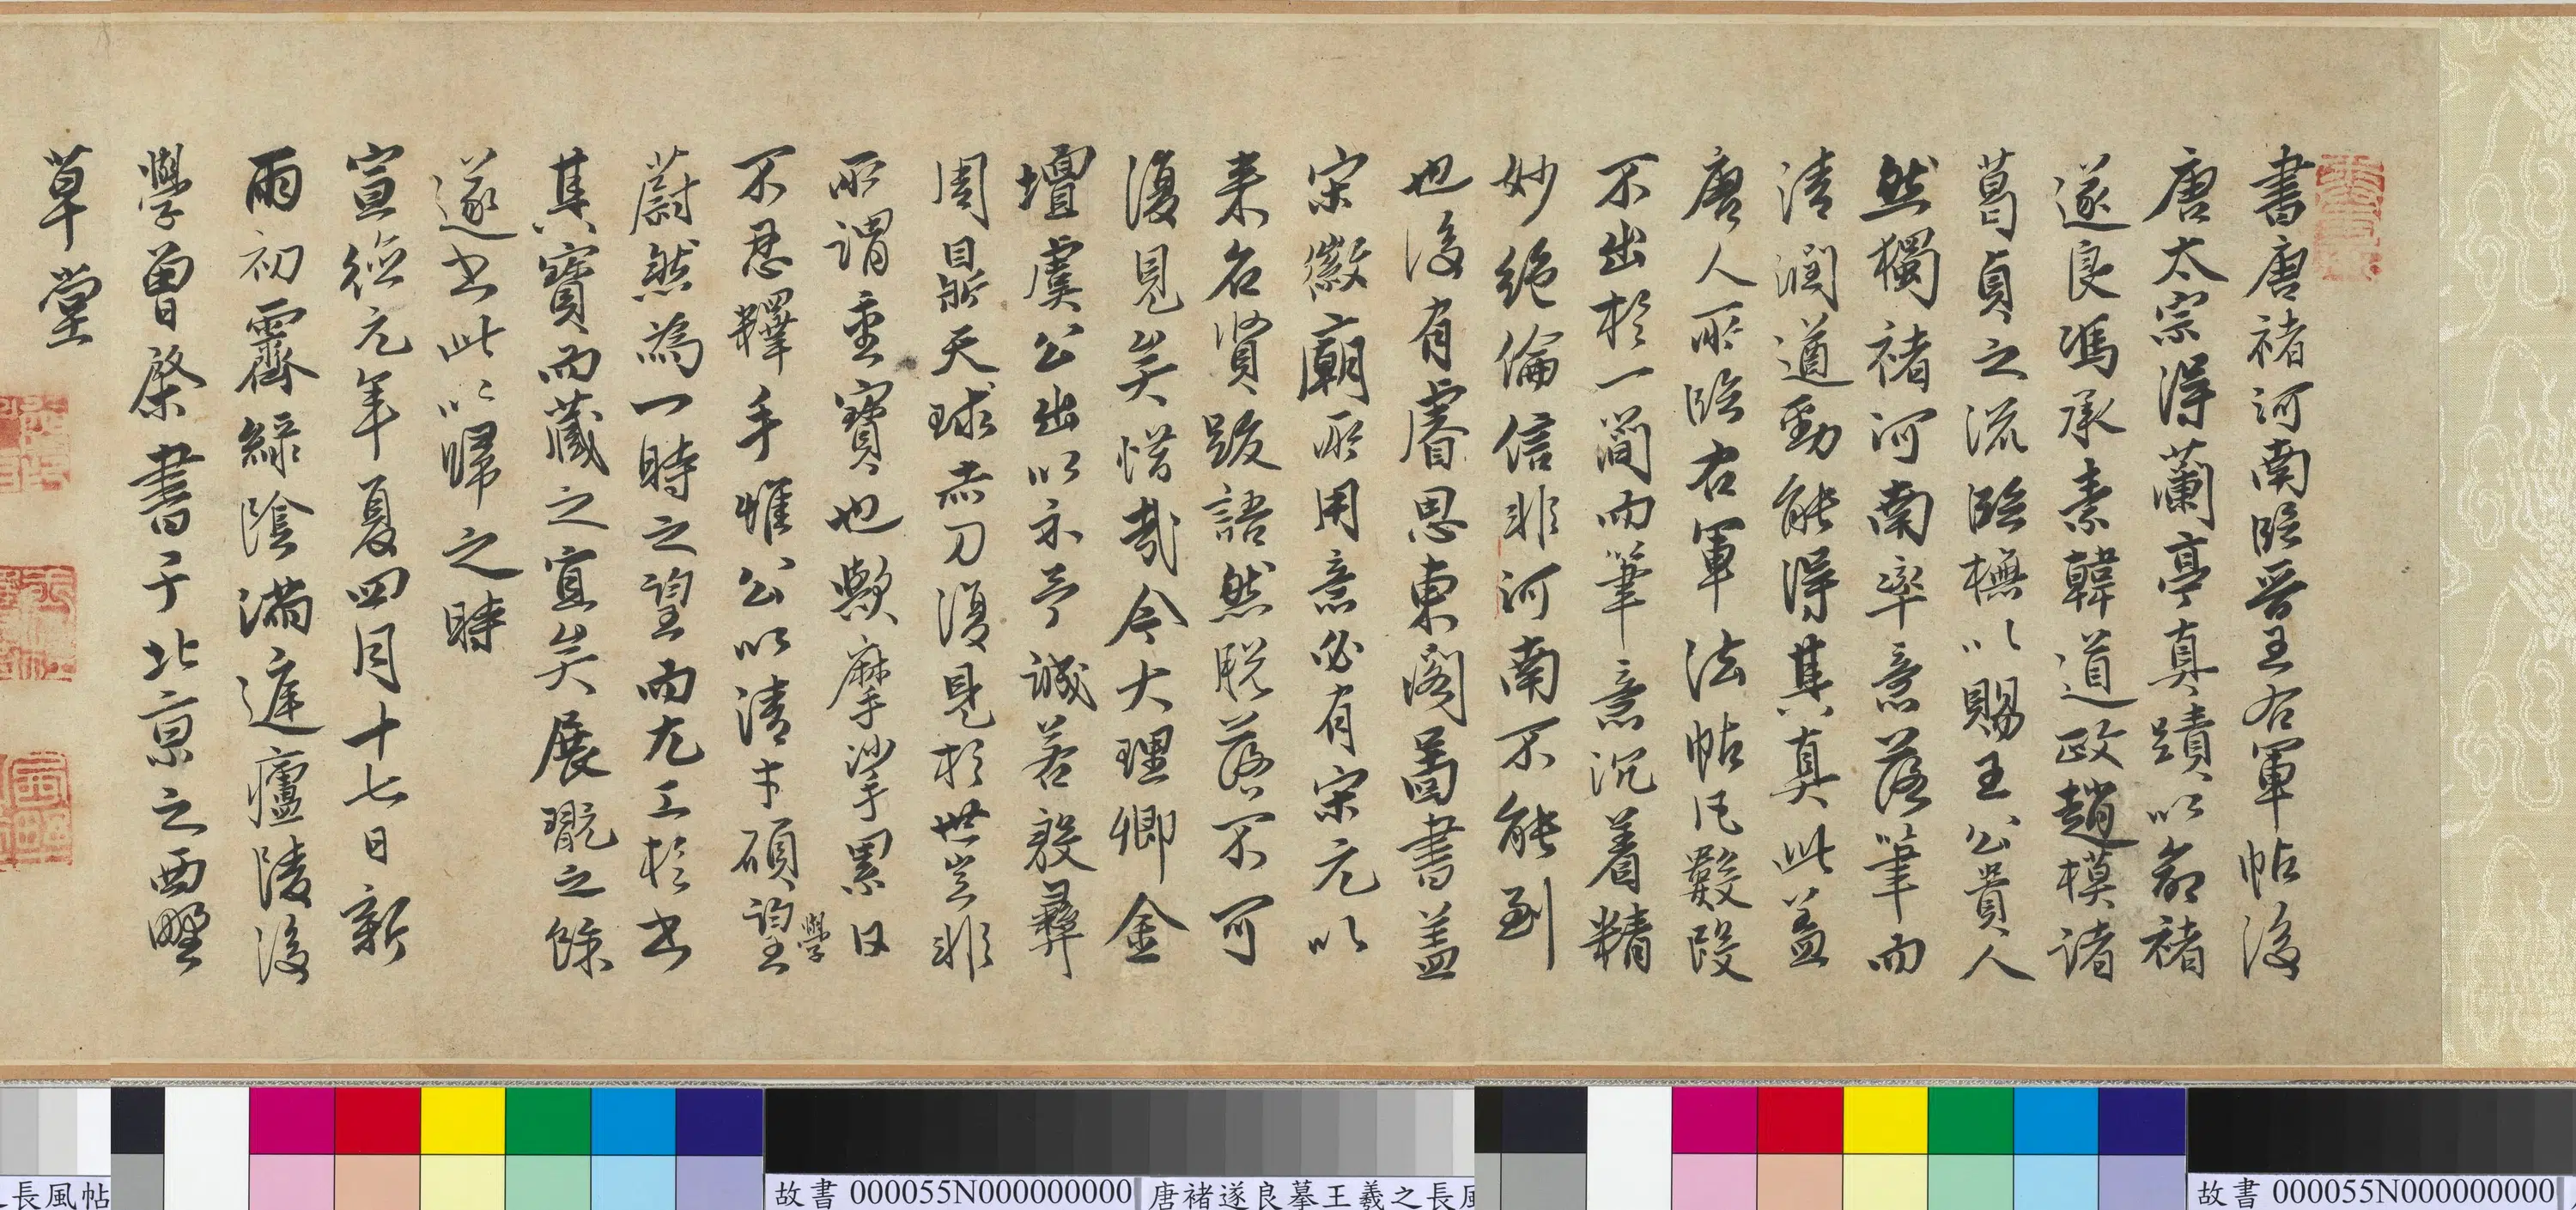 書唐褚河南臨晉王右軍帖後
唐太宗得蘭亭真蹟以命褚
遂良馮承素韓道政趙模諸
葛貞之流臨橅以賜王公貴人
然獨褚河南率意落筆而
清潤遒勁能得其真此蓋
唐人所臨右軍法帖凡數段
不出於一簡而筆意沉着精
妙絕倫信非河南不能到
也後有睿思東閣圖書蓋
宋徽廟所用意必有宋元以
来名賢跋語然脫落不可
復見矣惜哉今大理卿金
壇虞公出以示予誠若殷彝
周鼎天球赤刀復見於世豈非
所謂重寶也歟摩挲累日
不忍釋手惟公以清才碩望學
蔚然為一時之望而尤工於書
其寶而藏之宜矣展翫之餘
遂書此以歸之時
宣德元年夏四月十七日新
雨初霽綠陰滿庭廬陵後
學曾棨書于北京之西墅
草堂
之長風帖
故書 000055N000000000
唐褚遂良摹王羲之長風
故書 000055N000000000